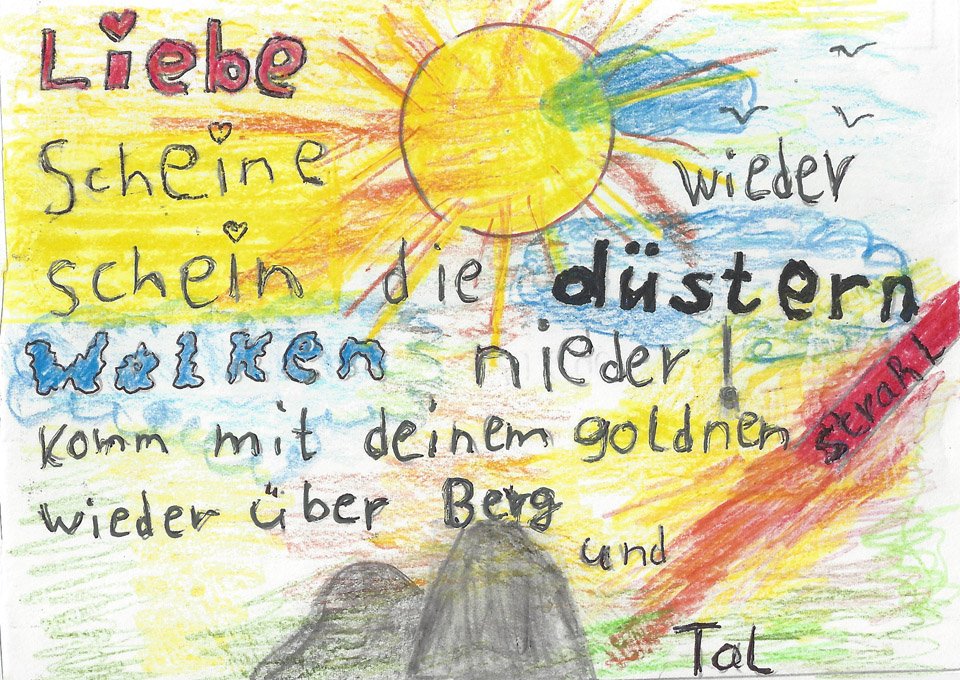 Liebe
Scheine wieder
schein die düstern
Wolken nieder!
komm mit deinem goldnen Strahl
wieder über Berg
und
Tal